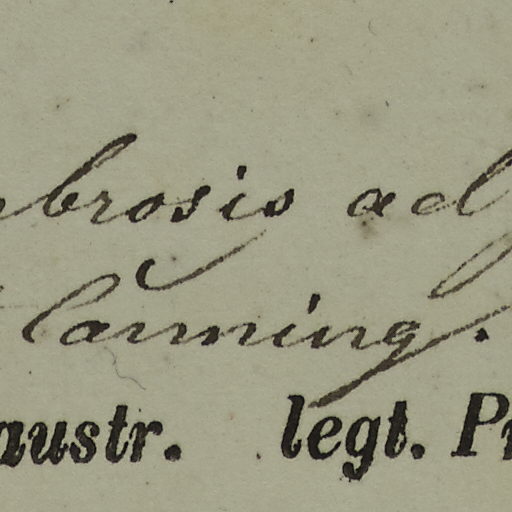 mbrosio ad
Canning.
austr. legt. Pr